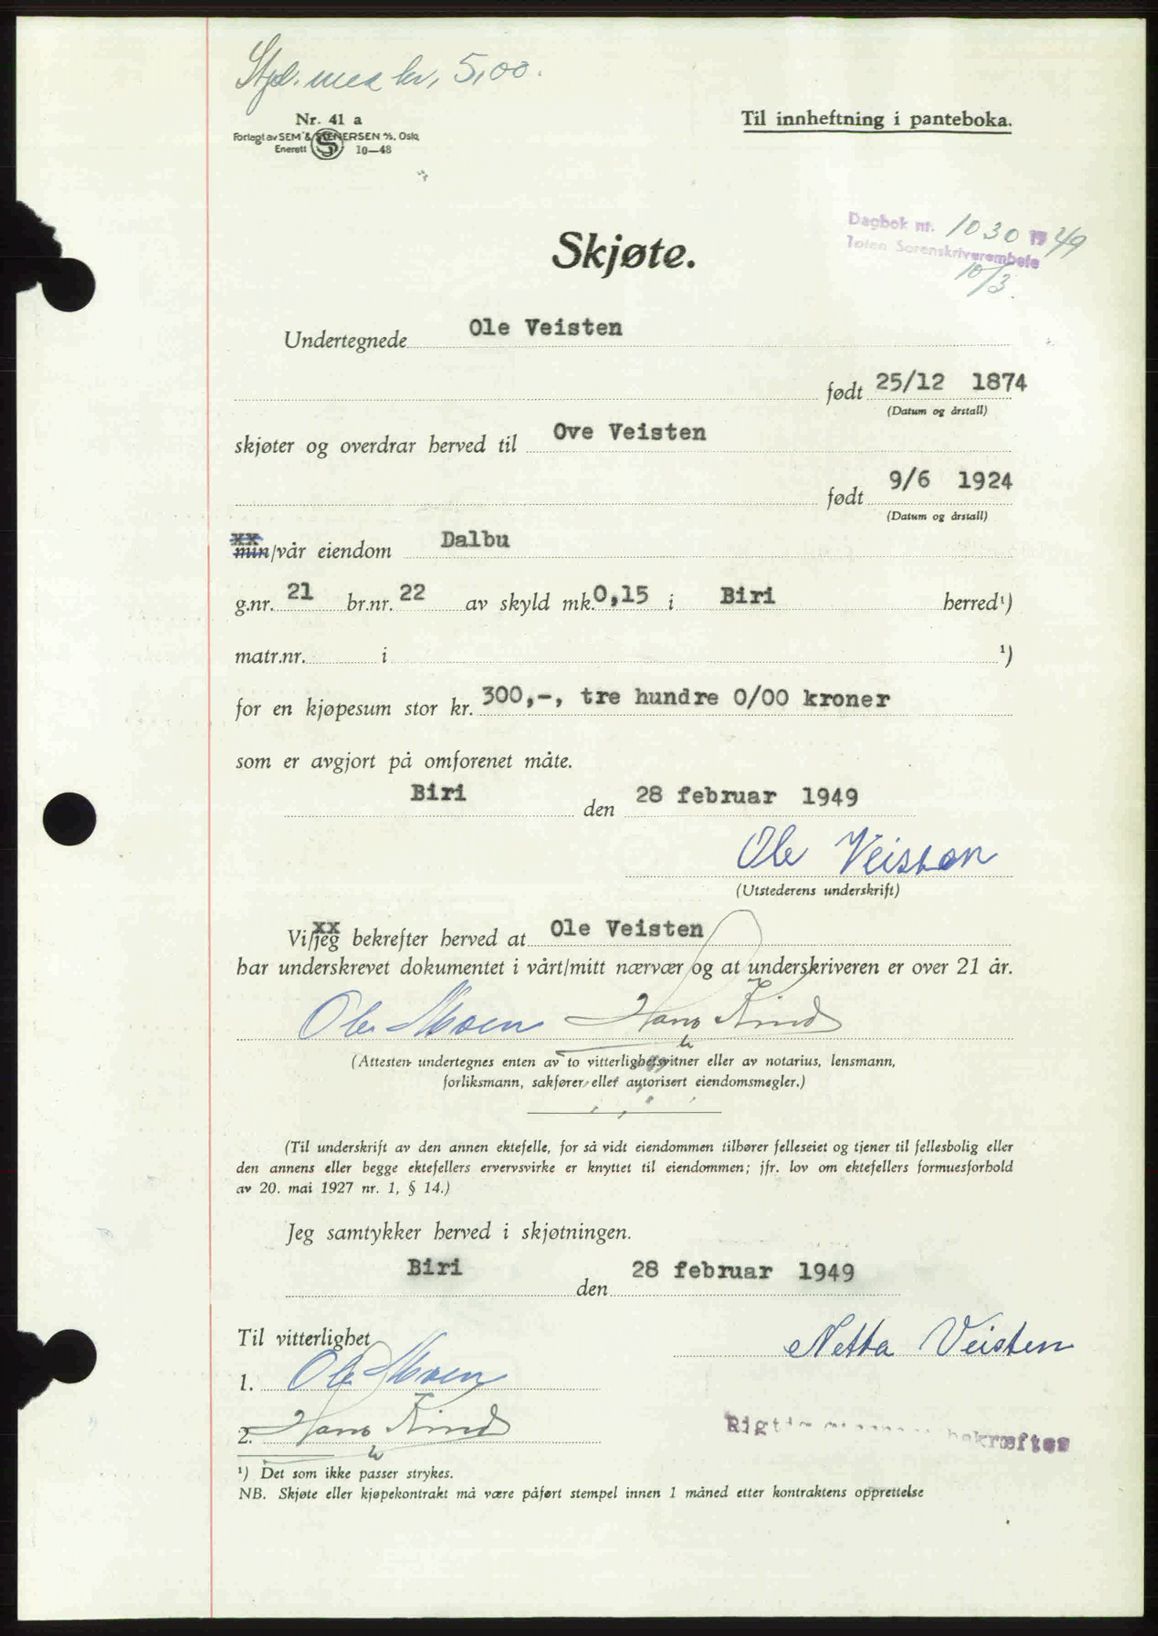 Stpl. med kr. 5,00.
Nr. 41 a
Forlagt av SEM & STENERSEN A/S, Oslo
Enerett 10—48
Til innheftning i panteboka.
Dagbok nr. 1030 1949
Toten Sorenskriverembete
10/3.
Skjøte.
Undertegnede Ole Veisten
født 25/12 1874
(Datum og årstall)
skjøter og overdrar herved til Ove Veisten
født 9/6 1924
(Datum og årstall)
xx
min/vår eiendom Dalbu
g.nr. 21 br.nr. 22 av skyld mk. 0,15 i Biri herred¹)
matr.nr. i ¹)
for en kjøpesum stor kr. 300,-, tre hundre 0/00 kroner
som er avgjort på omforenet måte.
Biri den 28 februar 1949
Ole Veisten
(Utstederens underskrift)
xx
Vi/jeg bekrefter herved at Ole Veisten
har underskrevet dokumentet i vårt/mitt nærvær og at underskriveren er over 21 år.
Ole Moen Hans Rind
(Attesten undertegnes enten av to vitterlighetsvitner eller av notarius, lensmann,
forliksmann, sakfører eller autorisert eiendomsmegler.)
(Til underskrift av den annen ektefelle, for så vidt eiendommen tilhører felleseiet og tjener til fellesbolig eller
den annens eller begge ektefellers ervervsvirke er knyttet til eiendommen; jfr. lov om ektefellers formuesforhold
av 20. mai 1927 nr. 1, § 14.)
Jeg samtykker herved i skjøtningen.
Biri den 28 februar 1949
Til vitterlighet
Netta Veisten
1. Ole Moen
2. Hans Rind
bekræftes
¹) Det som ikke passer strykes.
NB. Skjøte eller kjøpekontrakt må være påført stempel innen 1 måned etter kontraktens opprettelse